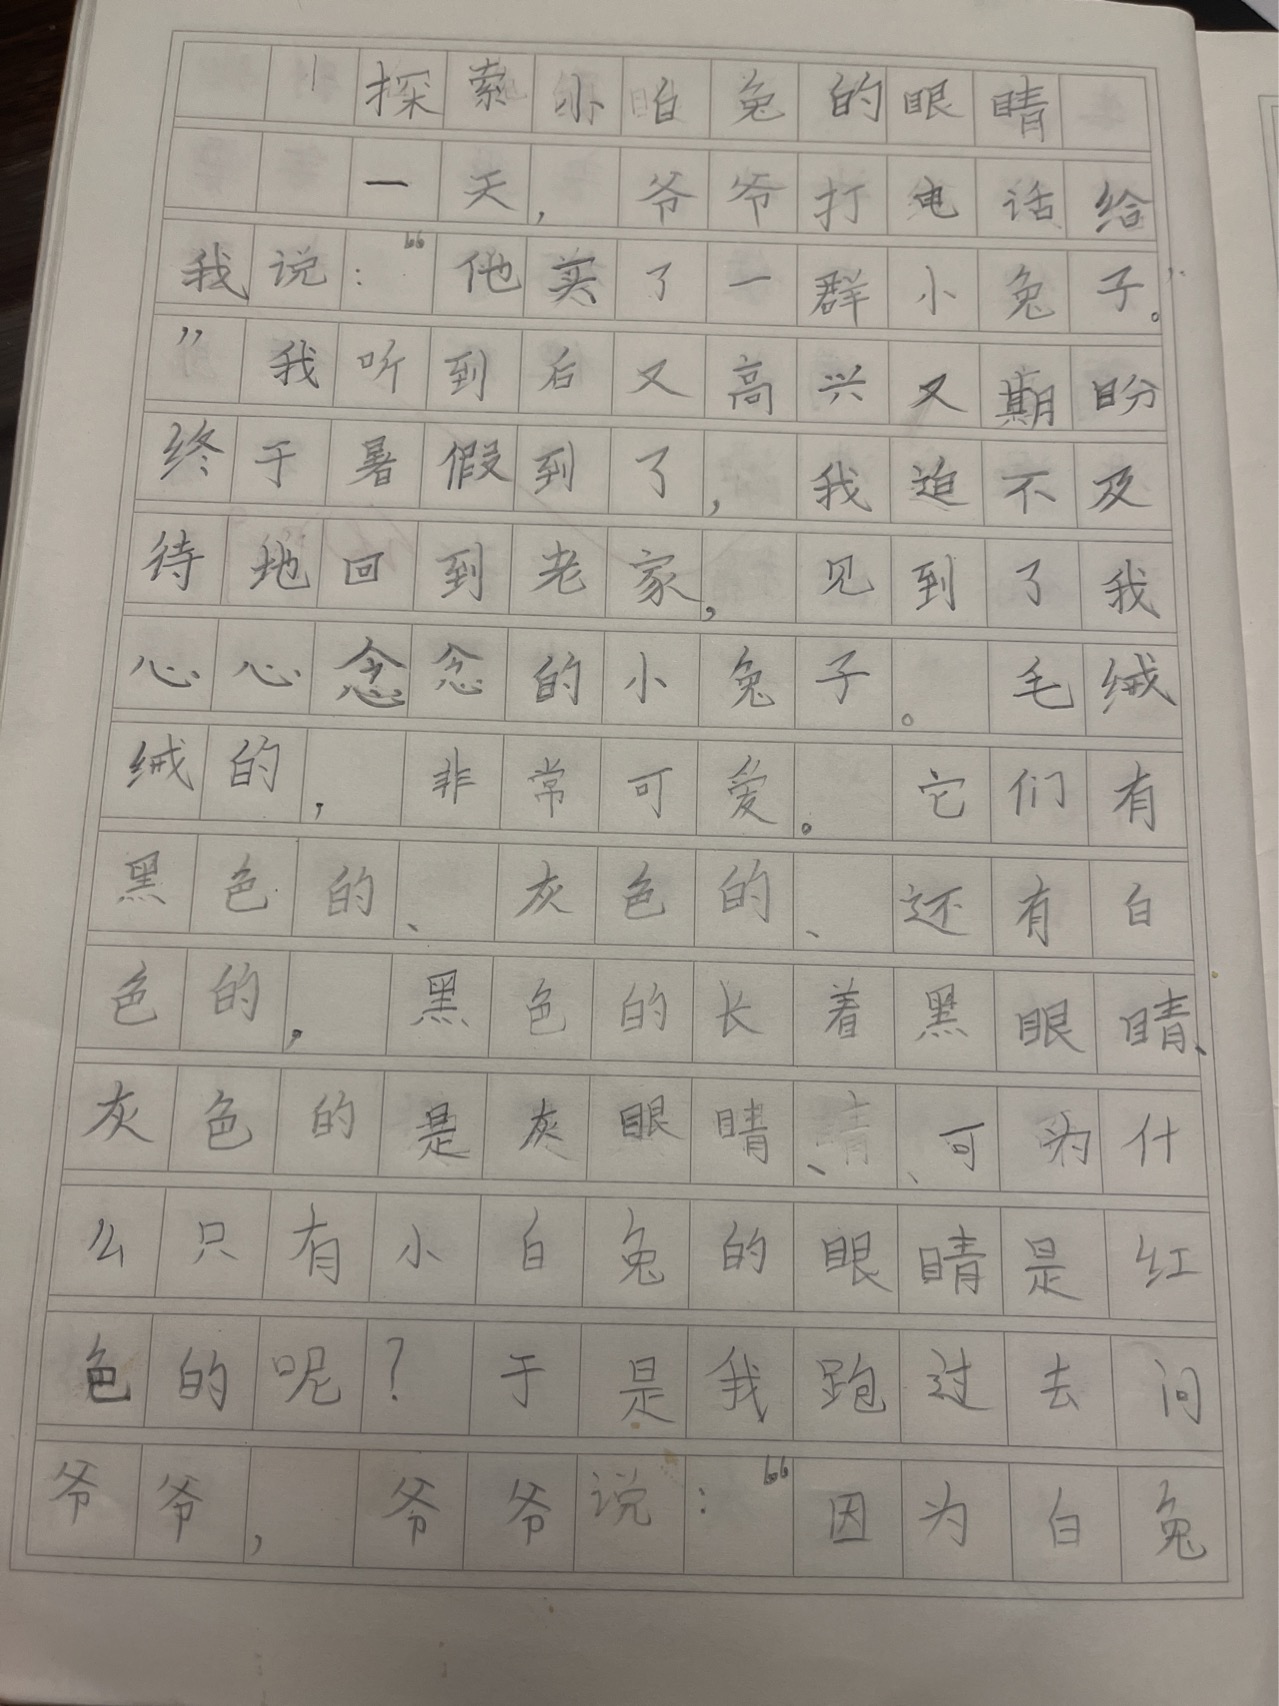 探索小白兔的眼睛
一天，爷爷打电话给
我说：“他买了一群小兔子。
”我听到后又高兴又期盼
终于暑假到了，我迫不及
待地回到老家，见到了我
心心念念的小兔子。毛绒
绒的，非常可爱。它们有
黑色的、灰色的、还有白
色的。黑色的长着黑眼睛、
灰色的是灰眼睛、可为什
么只有小白兔的眼睛是红
色的呢？于是我跑过去问
爷爷，爷爷说：“因为白兔